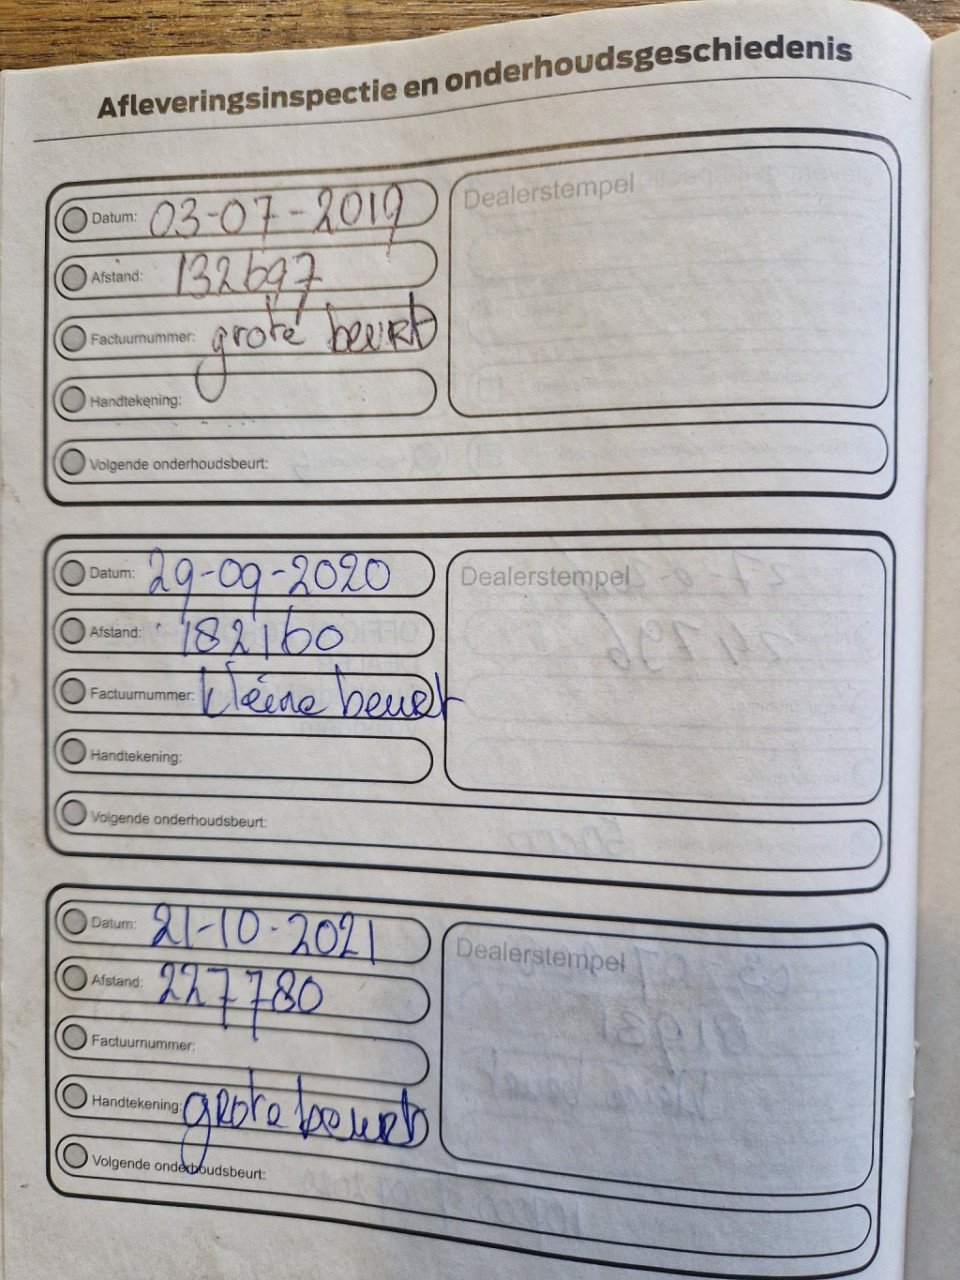 Afleveringsinspectie en onderhoudsgeschiedenis
Datum: 03-07-2019
Dealerstempel
Afstand: 132697
Factuurnummer: grote beurt
Handtekening:
Volgende onderhoudsbeurt:
Datum: 29-09-2020
Dealerstempel
Afstand: 182160
Factuurnummer: kleine beurt
Handtekening:
Volgende onderhoudsbeurt:
Datum: 21-10-2021
Dealerstempel
Afstand: 227780
Factuurnummer:
Handtekening: grote beurt
Volgende onderhoudsbeurt: